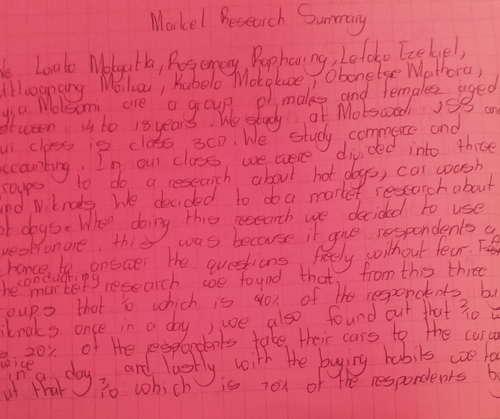 Market Research Summary
We Loato Rosemary Lefoko Ezekiel,
Kabelo Obonetse Mathora,
are a group of males and females aged
between 14 to 18 years. We study at Motswedi JSS and
our class is class 3CD. We study commerce and
accounting. In our class we were divided into three
groups to do a research about hot days, car wash
and Niknaks. We decided to do a market research about
hot days. When doing this research we decided to use
questionare. this was because it gave respondents a
chance to answer the questions freely without fear.
conducting
the market research we found that from this three
groups that which is of the respondents buy
niknaks once in a day, we also found out that
is 20% of the respondents take their cars to the carwash
twice
in a day and lastly with the buying habits we
out that 7/10 which is 70% of the respondents buy